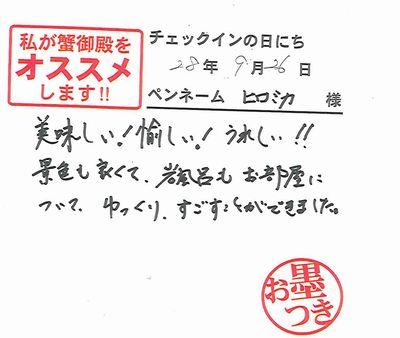 私が蟹御殿を
オススメ
します!!
チェックインの日にち
28年 9月26日
ペンネーム ヒロミカ 様
美味しい!愉しい!うれしい!!
景色も良くて、岩風呂も お部屋に
ついて、ゆっくり、すごすことができました。
お墨つき